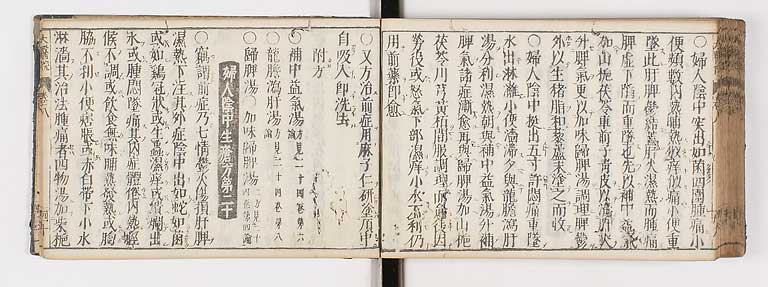 ○婦人陰中突出如菌四圍腫痛小
便頻數内熱晡熱似痒似痛小便重
墜此肝脾鬱結蓋肝火濕熱而腫痛
脾虛下陷而重墜也先以補中益氣
加山梔茯苓車前子青皮以清肝火
升脾氣更以加味歸脾湯調理脾鬱
外以生猪脂和藜蘆末塗之而收
○婦人陰中挺出五寸許悶痛重墜
水出淋漓小便澁滯夕與龍膽瀉肝
湯分利濕熱朝與補中益氣湯升補
脾氣諸症漸愈再與歸脾湯加山梔
茯苓川芎黃栢間服調理而愈後因
勞役或怒氣下部濕痒小水不利仍
用前藥即愈
○又方治前症用麻子仁研金頂中
自吸入即洗虫
附方
○補中益氣湯 方見二十四卷第六
○龍膽瀉肝湯 方見二十四卷第八
○歸脾湯○加味歸脾湯
婦人陰中生瘡方第二十
○竊謂前症乃七情鬱火傷損肝脾
濕熱下注其外症陰中出如蛇如菌
或如鷄冠狀或生蟲濕痒或潰爛出
水或腫悶墜痛其内症體倦内熱經
候不調或飲食無味晡熱發熱或胸
脇不利小便痞脹或赤白帶下小水
淋瀝其治法腫痛者四物湯加柴梔